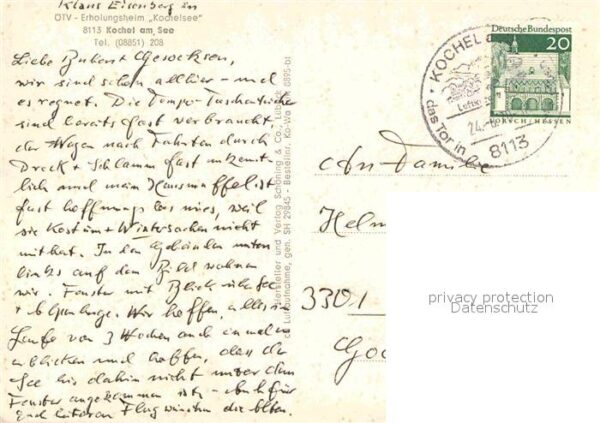 Klaus Eisenberg in
ÖTV - Erholungsheim „Kochelsee"
8113 Kochel am See
Tel. (08851) 208
Liebe
wir sind schon allhier - und
es regnet. Die Tempo-Taschentücher
sind bereits fast verbraucht
der Wagen nach Fahrten durch
Dreck + Schlamm fast unkennt-
lich und mein Hausmuffel ist
fast hoffnungslos mies, weil
sie Kostüm + Wintersachen nicht
mit hat. In dem Gebäude unten
links auf dem Bild wohnen
wir. Fenster mit Blick
Wir hoffen, alles im
Laufe von 3 Wochen auch einmal zu
erblicken und hoffen, dass der
See bis dahin nicht unter dem
Fenster angekommen ist - euch für
Flug wünschen die
Hersteller und Verlag Schöning & Co., Lübeck
Luftaufnahme, gen. SH 29845 - Bestellnr. Ko-We 8895-bt
Deutsche Bundespost
20
LORSCH/HESSEN
KOCHEL a
Luftku
24.
das Tor in
8113
An Familie
Helm
3301
privacy protection
Datenschutz